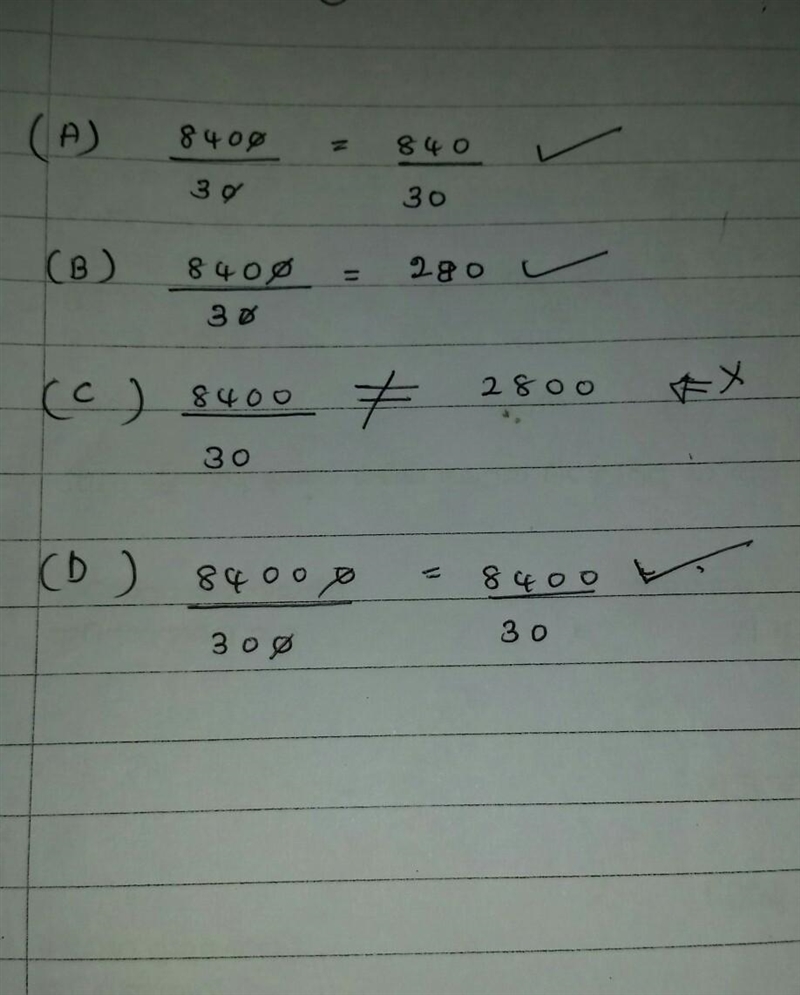 (A) 8400/30 = 840/30 ✓
(B) 8400/30 = 280 ✓
(C) 8400/30 ≠ 2800 ⇐ X
(D) 84000/300 = 8400/30 ✓